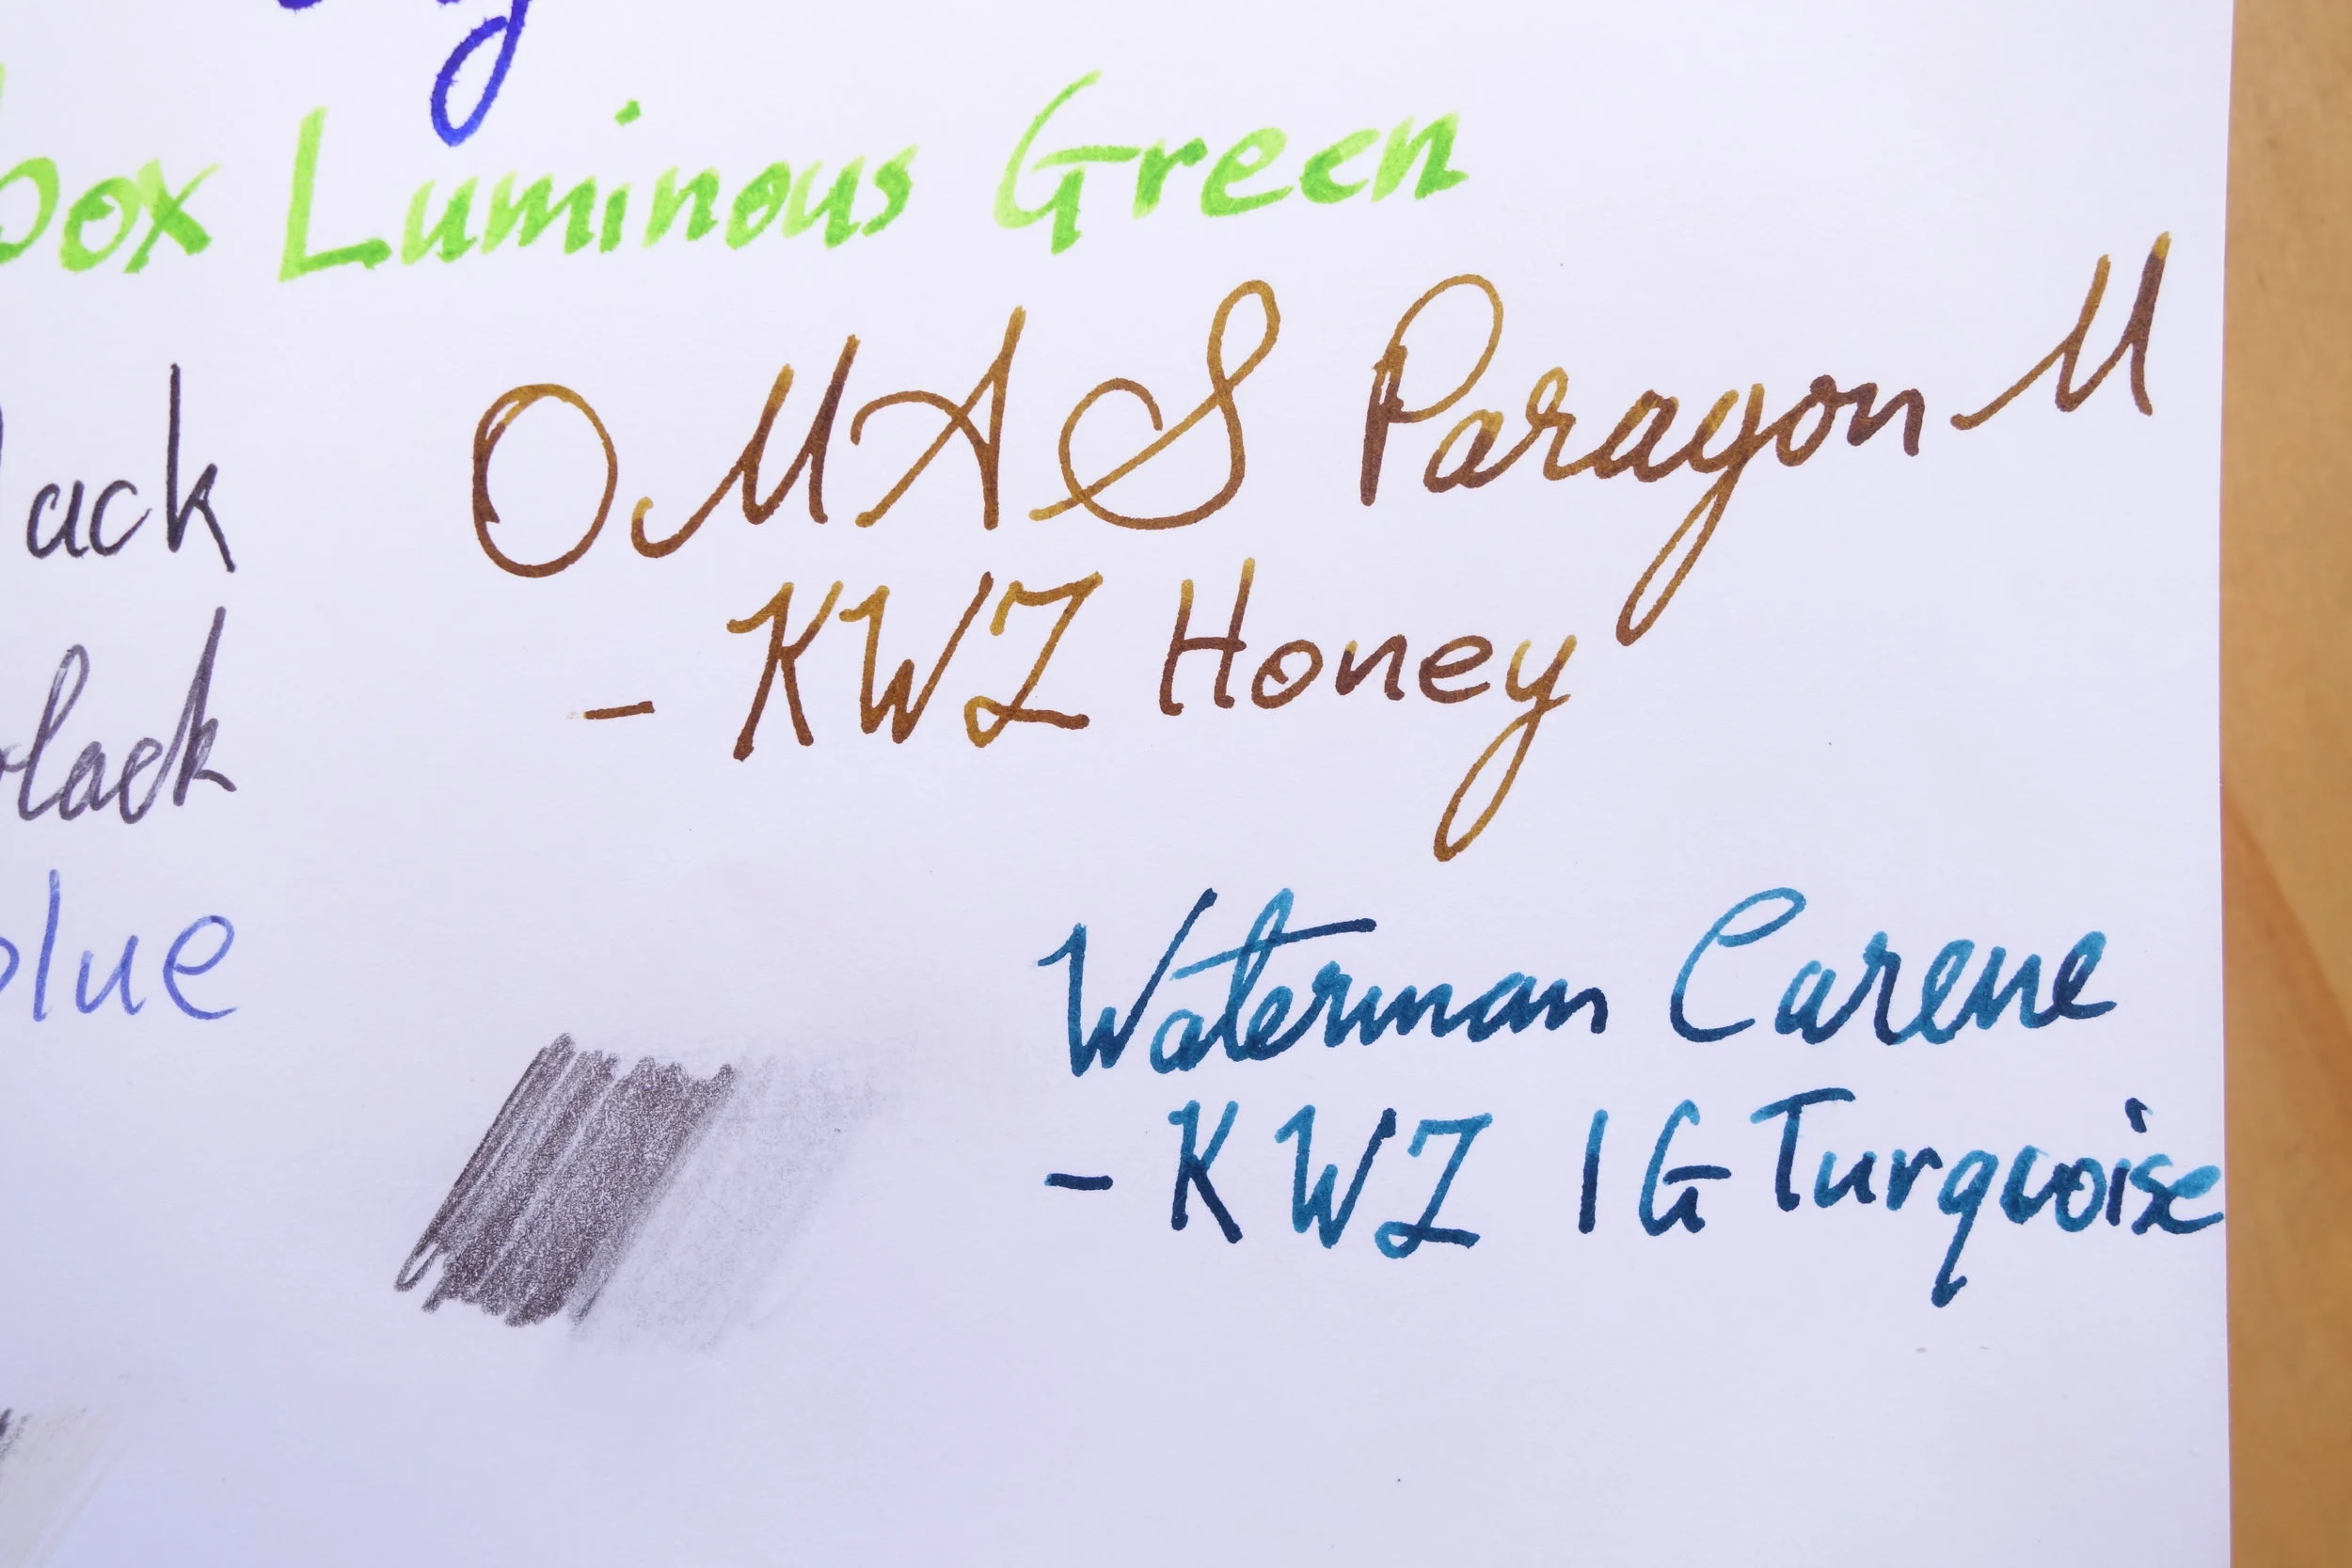 box Luminous Green
OMAS Paragon M
lack
- KWZ Honey
black
blue
Waterman Carene
- KWZ IG Turquoise